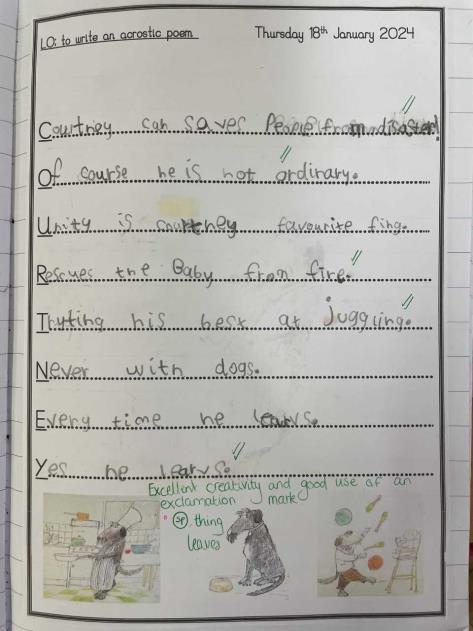 LO: to write an acrostic poem
Thursday 18th January 2024
Courtney can saves People from disaster!
Of course he is not ordinary.
Unity is courtney favourite fing.
Rescues the Baby from fire.
Tryting his best at juggling.
Never with dogs.
Every time he learvs.
Yes he learvs.
Excellent creativity and good use of an
exclamation mark
Sp thing
leaves